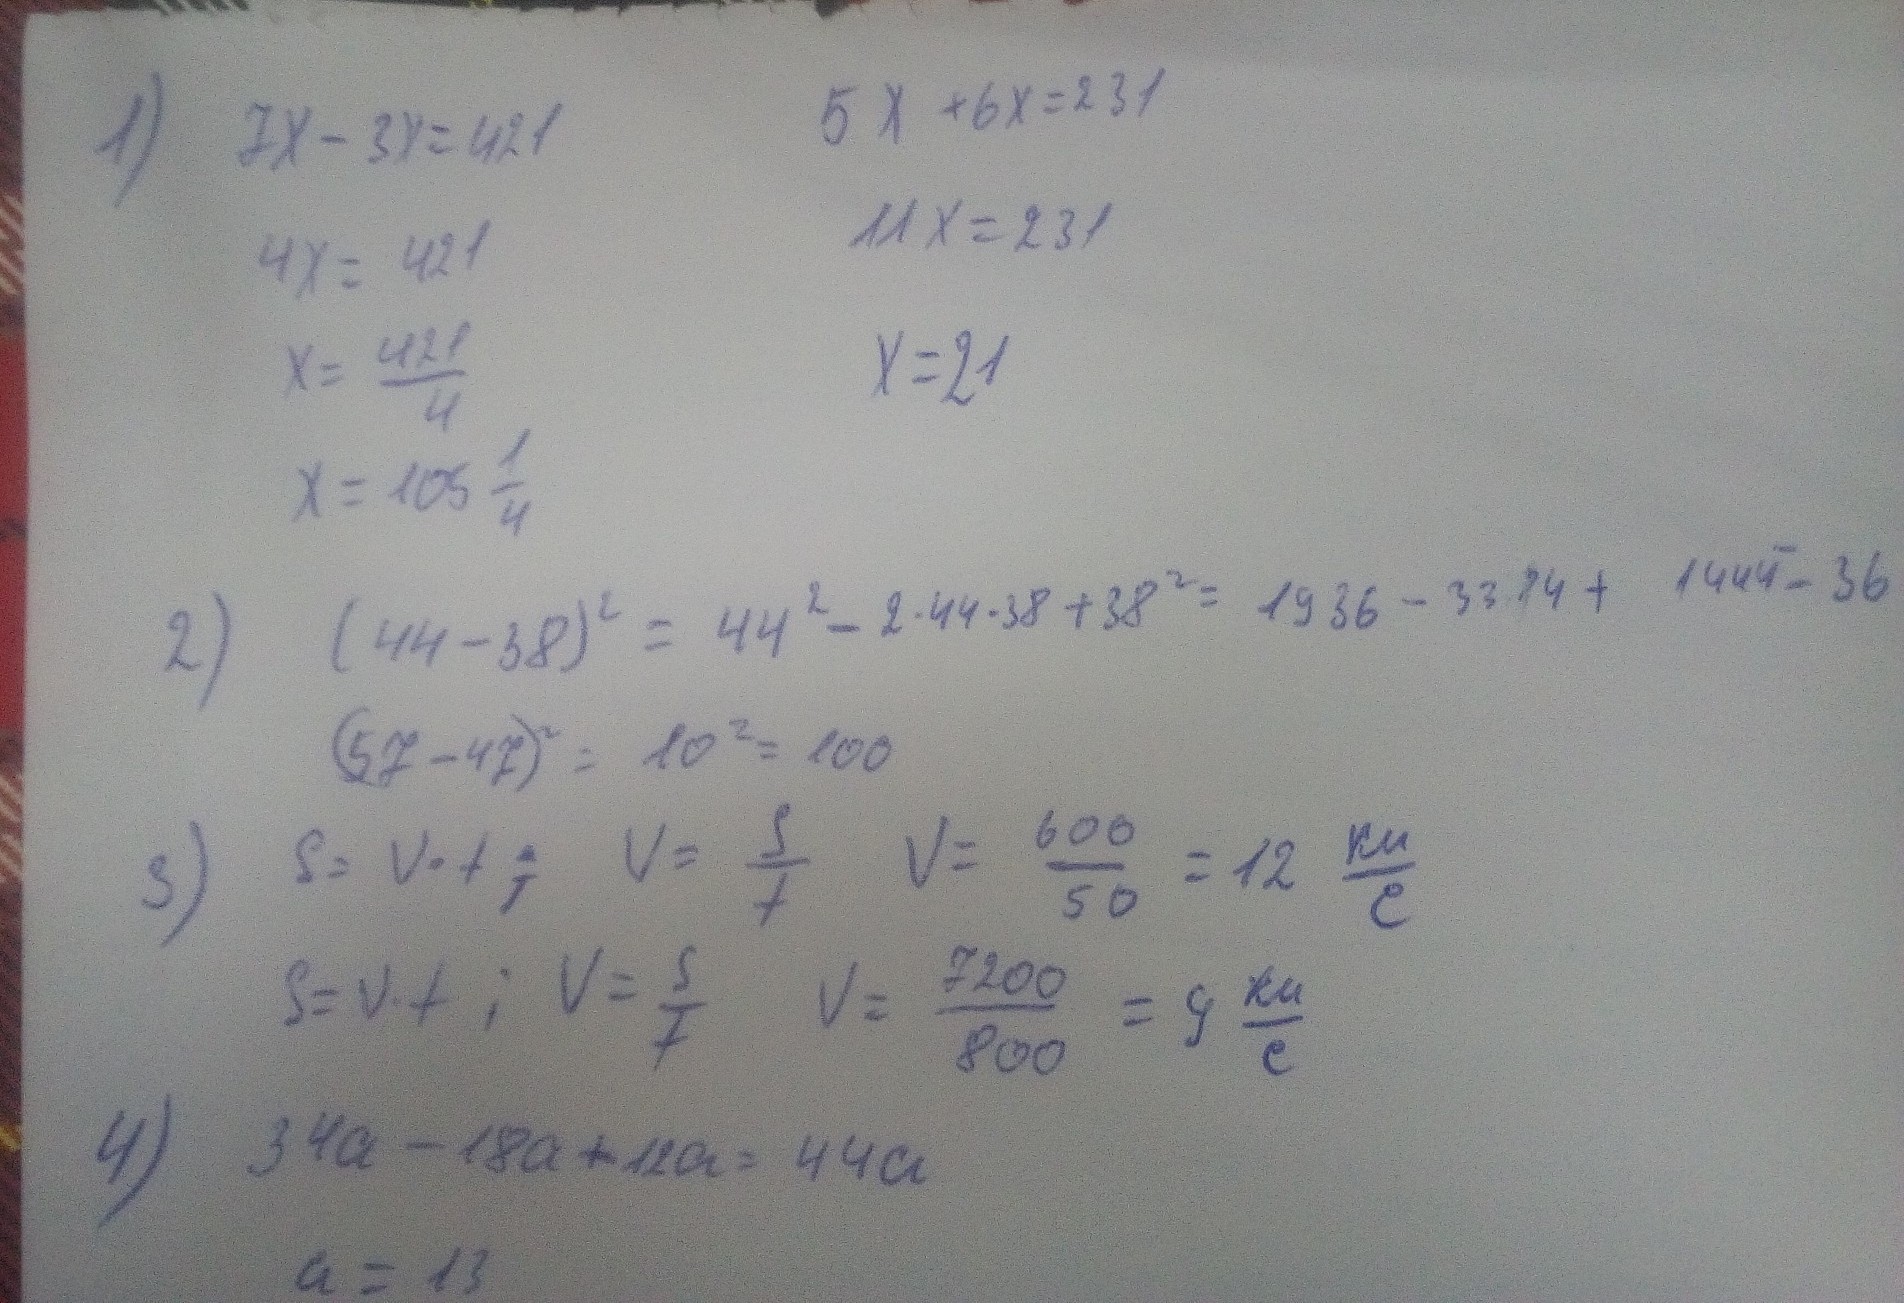 1) 7x - 3x = 421
5x + 6x = 231
4x = 421
11x = 231
x = 421/4
x = 21
x = 105 1/4
2) (44 - 38)² = 44² - 2·44·38 + 38² = 1936 - 33 + 1444 = 36
(57 - 47)² = 10² = 100
3) S = V·t ; V = S/t V = 600/50 = 12 км/с
S = V·t ; V = S/t V = 7200/800 = 9 км/с
4) 34a - 18a + 12a = 44a
a = 13